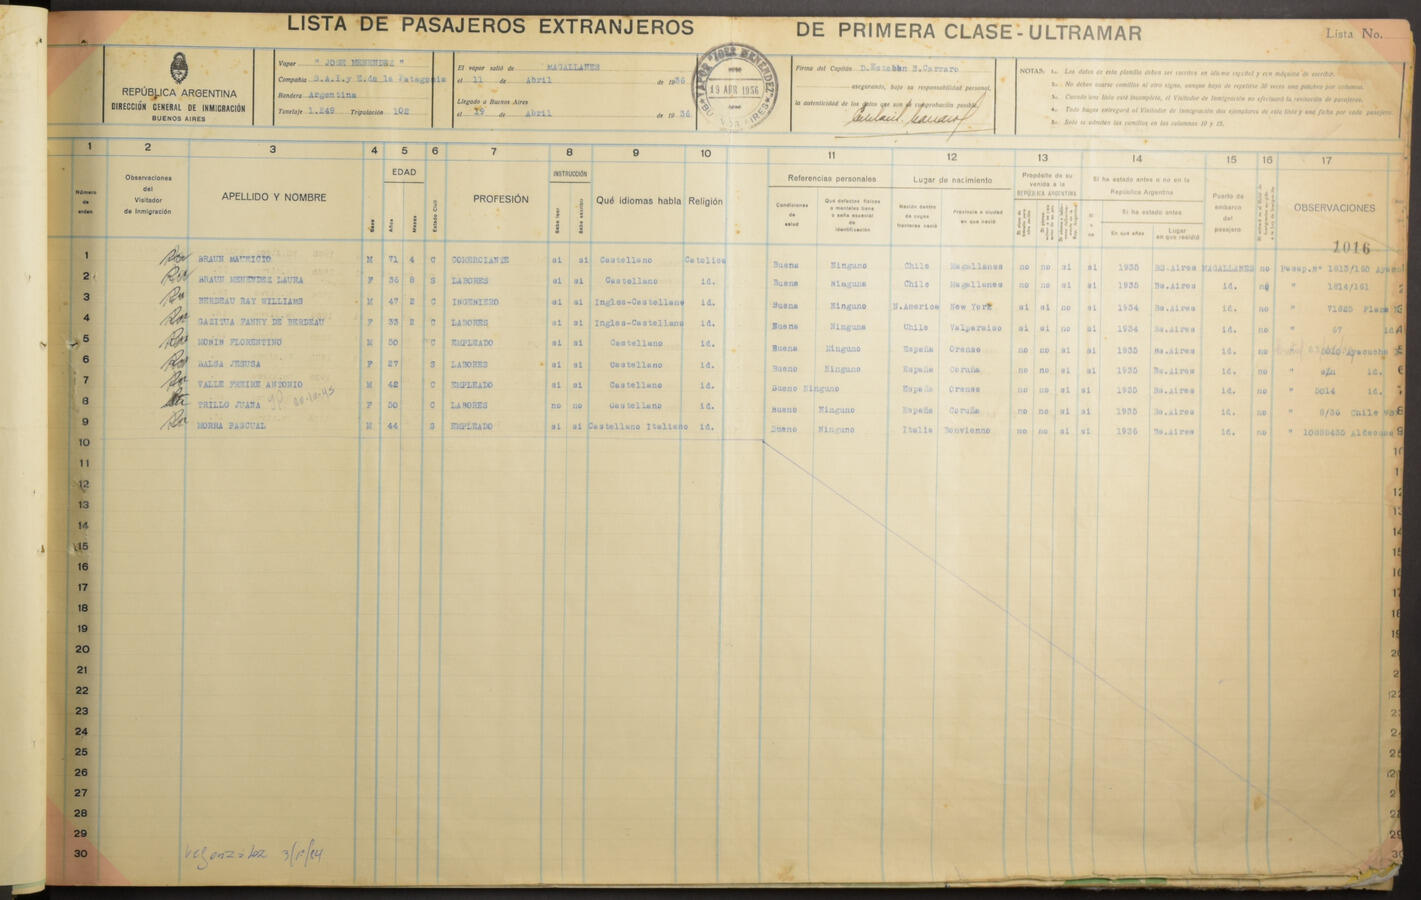 LISTA DE PASAJEROS EXTRANJEROS DE PRIMERA CLASE-ULTRAMAR
Lista No.
REPÚBLICA ARGENTINA
DIRECCIÓN GENERAL DE INMIGRACIÓN
BUENOS AIRES
Vapor " JOSE MENENDEZ "
Compañía S.A.I.y E.de la Patagonia
Bandera Argentina
Tonelaje 1.249 Tripulación 102
El vapor salió de MAGALLANES
el 11 de Abril de 1936
Llegado a Buenos Aires
el 19 de Abril de 1936
VAPOR "JOSE MENENDEZ"
19 ABR 1936
BUENOS AIRES
Firma del Capitán D.Esteban B.Carraro
asegurando, bajo su responsabilidad personal,
la autenticidad de los datos que son su comprobación posible.
NOTAS: 1.- Los datos de esta planilla deben ser escritos en idioma español y con máquina de escribir.
2.- No deben usarse comillas ni otro signo, aunque haya de repetirse 30 veces una palabra por columna.
3.- Cuando una lista esté incompleta, el Visitador de Inmigración no efectuará la revisación de pasajeros.
4.- Todo buque entregará al Visitador de Inmigración dos ejemplares de esta lista y una ficha por cada pasajero.
5.- Solo se admiten las comillas en las columnas 10 y 15.
1 2 3 4 5 6 7 8 9 10 11 12 13 14 15 16 17
Número de orden
Observaciones del Visitador de Inmigración
APELLIDO Y NOMBRE
Sexo
EDAD
Años
Meses
Estado Civil
PROFESIÓN
INSTRUCCIÓN
Sabe leer
Sabe escribir
Qué idiomas habla
Religión
Referencias personales
Condiciones de salud
Qué defectos físicos o mentales tiene o seña especial de identificación
Lugar de nacimiento
Nación dentro de cuyas fronteras nació
Provincia o ciudad en que nació
Propósito de su venida a la REPÚBLICA ARGENTINA
Si ha estado antes o no en la República Argentina
Si ha estado antes
En qué años
Lugar en que residió
Puerto de embarco del pasajero
OBSERVACIONES
1016
1 BRAUN MAURICIO M 71 4 C COMERCIANTE si si Castellano Catolica Buena Ninguno Chile Magallanes no no si si 1935 BS.Aires MAGALLANES no Pasap.Nº 1613/160
2 BRAUN MENENDEZ LAURA F 36 8 S LABORES si si Castellano id. Buena Ninguna Chile Magallanes no no si si 1935 Bs.Aires id. no " 1614/161
3 BERDEAU RAY WILLIAMS M 47 2 C INGENIERO si si Ingles-Castellano id. Buena Ninguno N.America New York si si no si 1934 Bs.Aires id. no " 71625
4 GAZITUA FANNY DE BERDEAU F 33 2 C LABORES si si Ingles-Castellano id. Buena Ninguna Chile Valparaiso si si no si 1934 Bs.Aires id. no " 67 id.
5 MORIN FLORENTINO M 50 C EMPLEADO si si Castellano id. Buena Ninguno España Orense no no si si 1935 Bs.Aires id. no " Ayacucho
6 BALSA JESUSA F 27 S LABORES si si Castellano id. Bueno Ninguno España Coruña no no si si 1935 Bs.Aires id. no " s/n id.
7 VALLE FREIRE ANTONIO M 42 C EMPLEADO si si Castellano id. Bueno Ninguno España Orense no no si si 1935 Bs.Aires id. no " 5014 id.
8 TRILLO JUANA F 50 C LABORES no no Castellano id. Bueno Ninguno España Coruña no no si si 1935 Bs.Aires id. no " 8/36 Chile
9 MORRA PASCUAL M 44 S EMPLEADO si si Castellano Italiano id. Bueno Ninguno Italia Bonvienno no no si si 1936 Bs.Aires id. no "
10
11
12
13
14
15
16
17
18
19
20
21
22
23
24
25
26
27
28
29
30